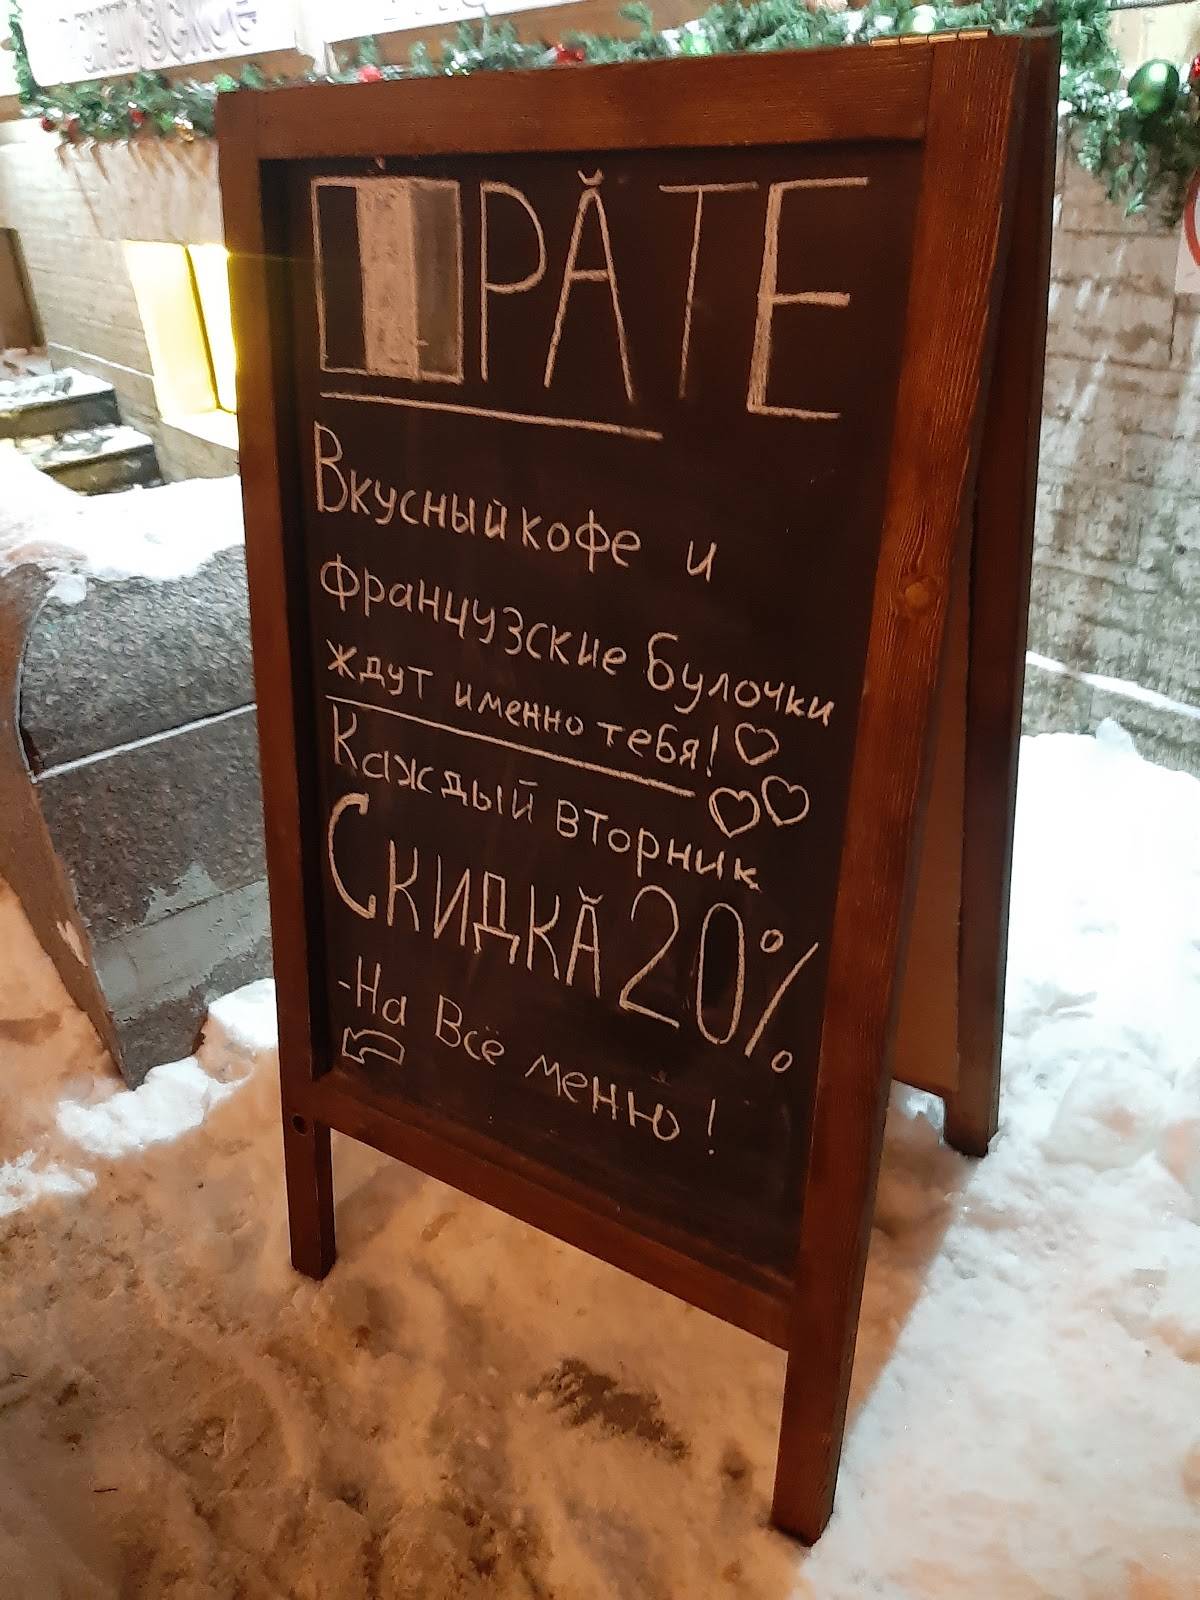 PǍTE
Вкусный кофе и
французские булочки
ждут именно тебя!
Каждый вторник
Скидка 20%
-На Всё меню!